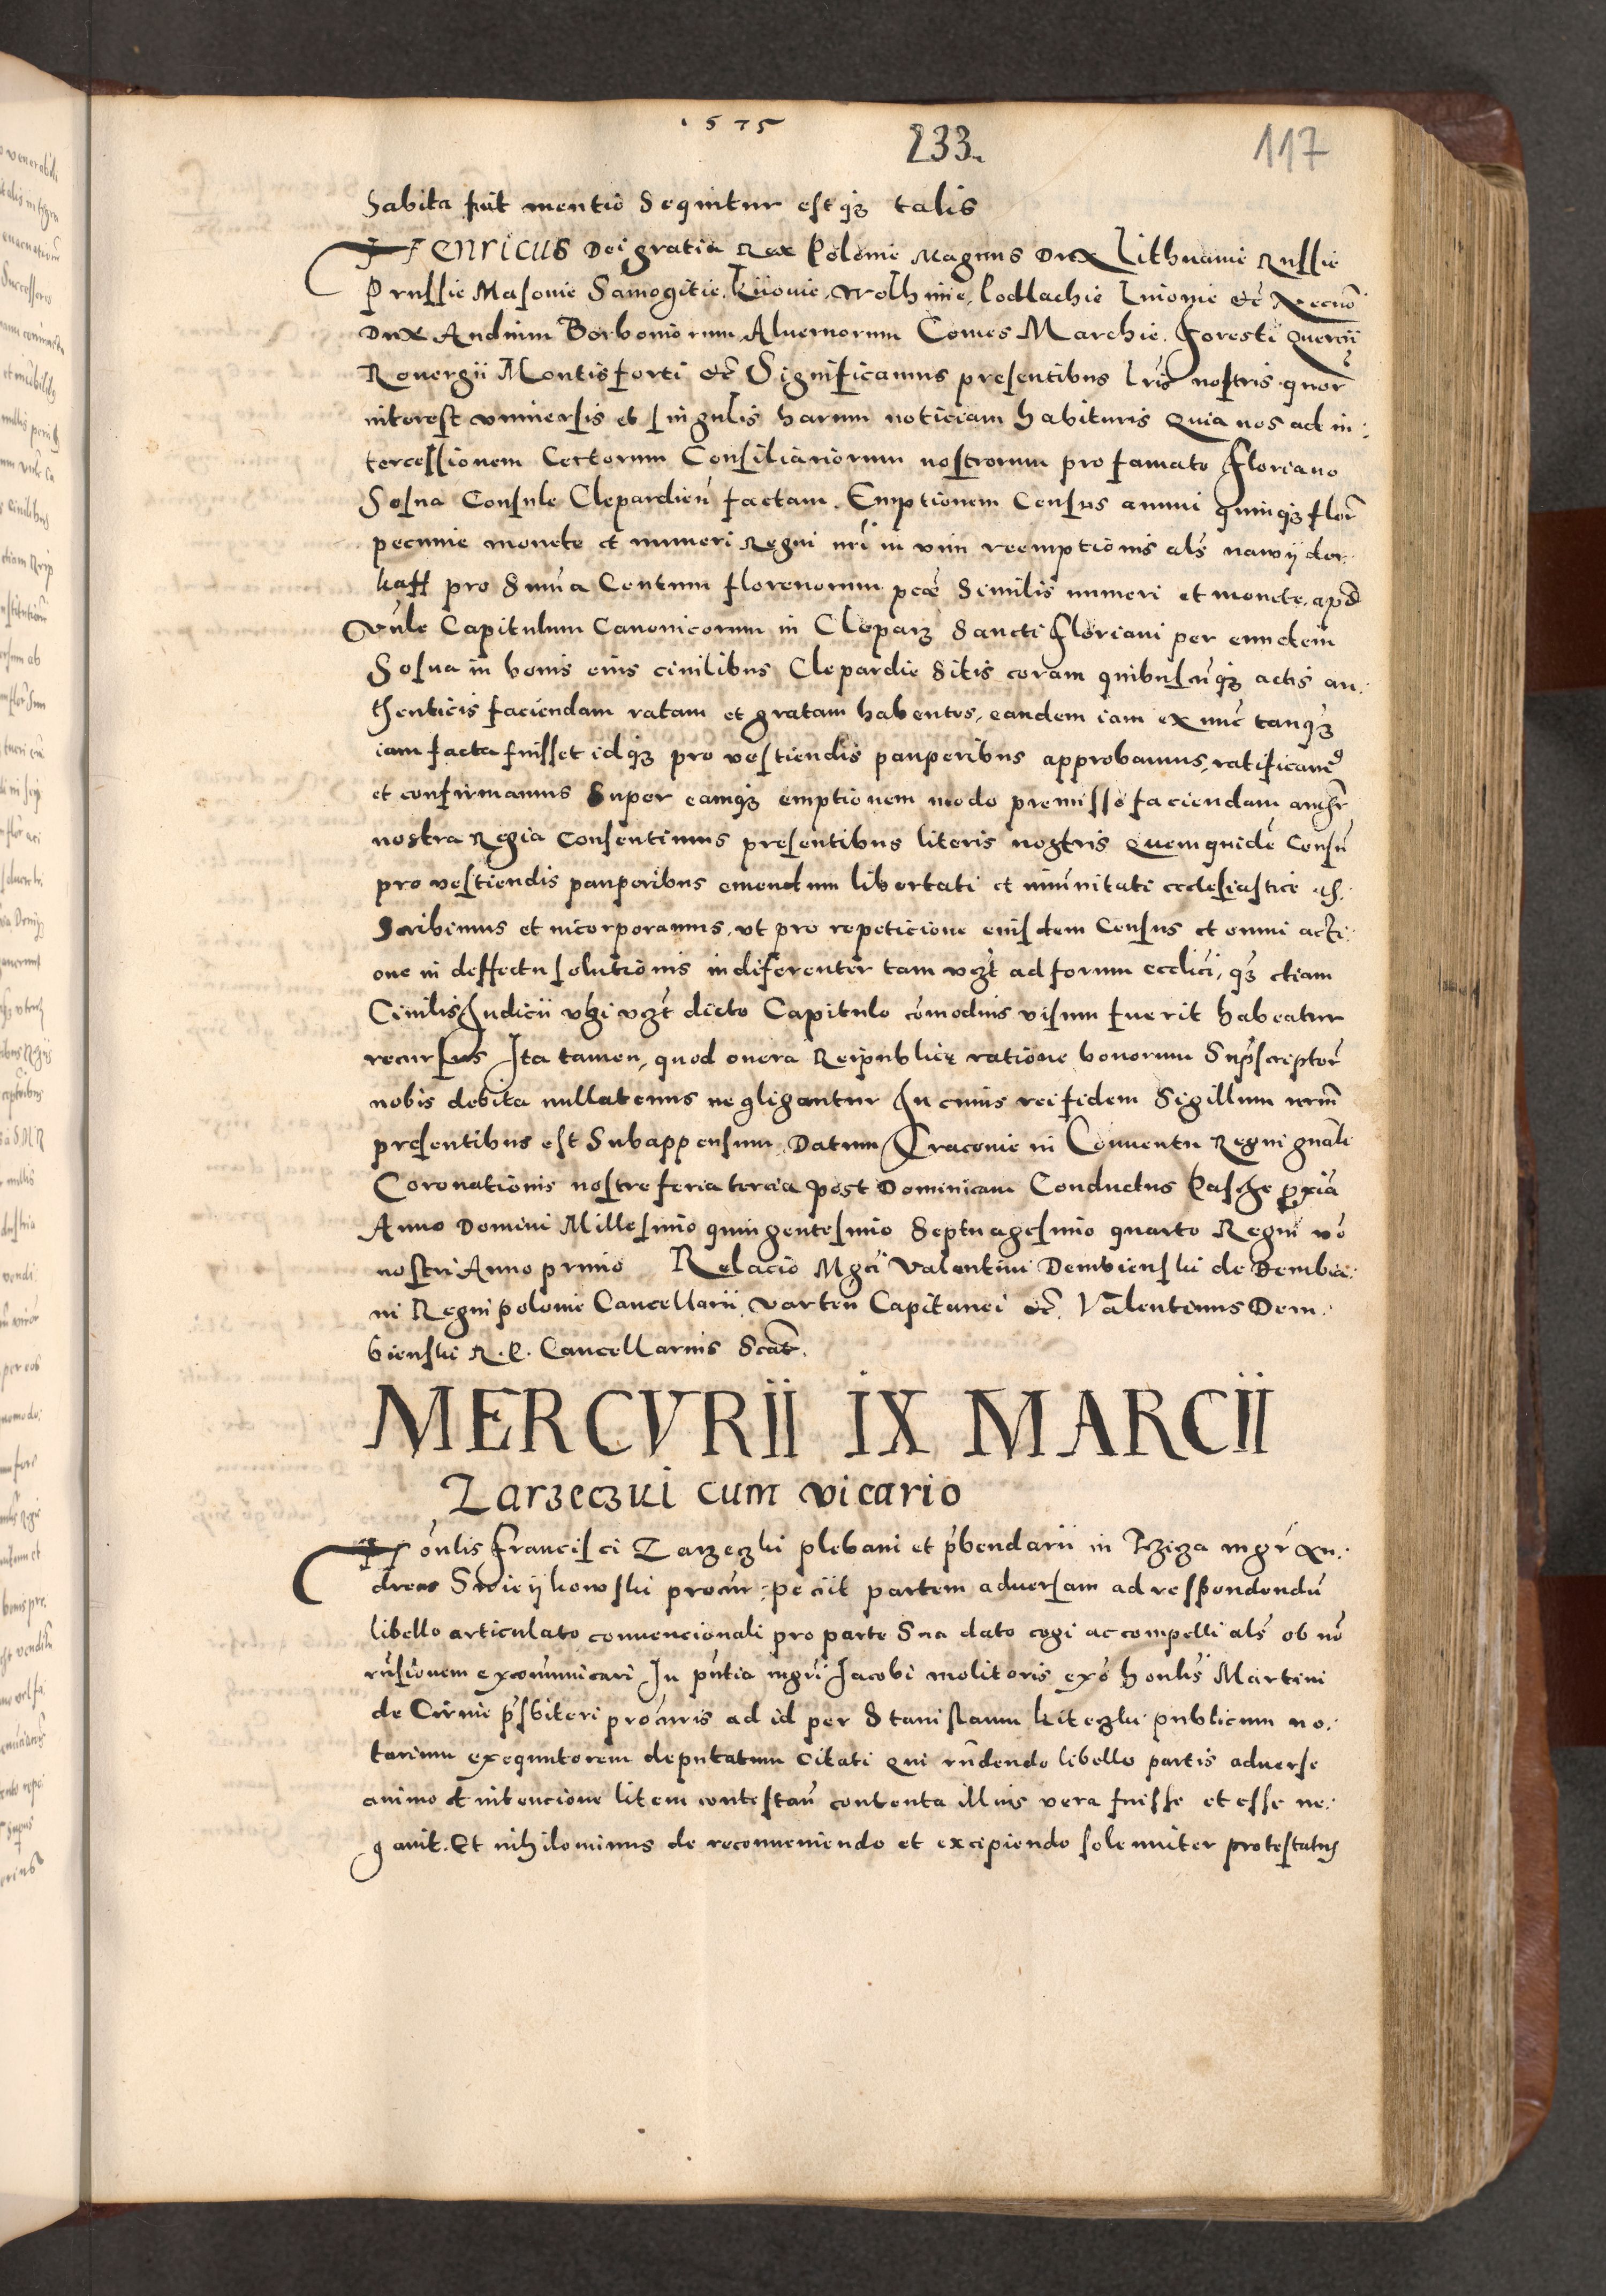 1575
233.
117
habita fuit mentio Sequitur estqȝ talis
Henricus Dei gratia Rex Polonie Magnus Dux Lithuanie Russie
Prussie Masouie Samogitie, Kiiouie, Wolhinie, Podlachie Liuonie etc̄ Necnō
Dux Andium Borboniorum Aluernorum Comes Marchie. Foresti Quercii
Rouergii Montisforti etc̄ Significamus presentibus lr̄is nostris quor̄
interest vniuersis et singulis harum noticiam habituris Quia nos ad in:
tercessionem Certorum Consiliariorum nostrorum pro famato Floriano
Sosna Consule Clepardien̄ factam. Emptionem Census annui quinqȝ flor̄
pecunie monete et numeri Regni nr̄i in vim reemptionis als̄ nawÿder:
kaff pro Sum̄a Centum florenorum pc̄e Similis numeri et monete, apd̄
Vn̄le Capitulum Canonicorum in Cleparȝ Sancti Floriani per eundem
Sosna in bonis eius ciuilibus Clepardie Sitis coram quibuscūqȝ actis au:
thenticis faciendam ratam et gratam habentes, eandem iam ex nūc tanqȝ
iam facta fuisset idqȝ pro vestiendis pauperibus approbamus, ratificam9
et confirmamus Super eamqȝ emptionem modo premisso faciendam
nostra Regia Consentimus presentibus literis nostris Quem quidē Censū
pro vestiendis pauperibus emendum libertati et im̄unitati ecclesiastice as:
Scribimus et incorporamus, vt pro repeticione eiusdem Census et omni acti:
one in deffectu solutionis indiferenter tam vȝt ad forum ecclici, qȝ etiam
Ciuilis Judicii vbi vȝt dicto Capitulo cōmodius visum fuerit habeatur
recursus Ita tamen, quod onera Reipublicę ratione bonorum Sup̄scriptor̄
nobis debita nullatenus negligantur In cuius rei fidem Sigillum nrm̄
presentibus est Subappensum. Datum Cracouie in Conuentu Regni gnāli
Coronationis nostre feria tercia post Dominicam Conductus Pasche pxīa
Anno Domini Millesimo quingentesimo Septuagesimo quarto Regni vō
nostri Anno primo Relacio Mgci Valentini Dembienski de Dembia:
ni Regni polonie Cancellarii, varten̄ Capitanei etc̄. Valentinus Dem:
bienski R. P. Cancellarius Scāt.
MERCVRII IX MARCII
Zarzeczki cum vicario
Honlis Francisci Zarzeczki plebani et p̄bendarii in mgr̄ An:
dreas Swieÿkowski procur̄: peciit partem aduersam ad respondendū
libello articulato conuencionali pro parte Sua dato cogi ac compelli als̄ ob nō
rn̄sionem excomunicari In pn̄tia mgri Jacobi molitoris exō honlis Martini
de p̄sbiteri procuris ad id per Stanislaum kiteczki publicum no:
tarium exequutorem deputatum Citati Qui rn̄dendo libello partis aduerse
animo et intencione litem contestan̄ contenta illius vera fuisse et esse ne:
gauit. Et nihilominus de reconueniendo et excipiendo solenniter protestatus